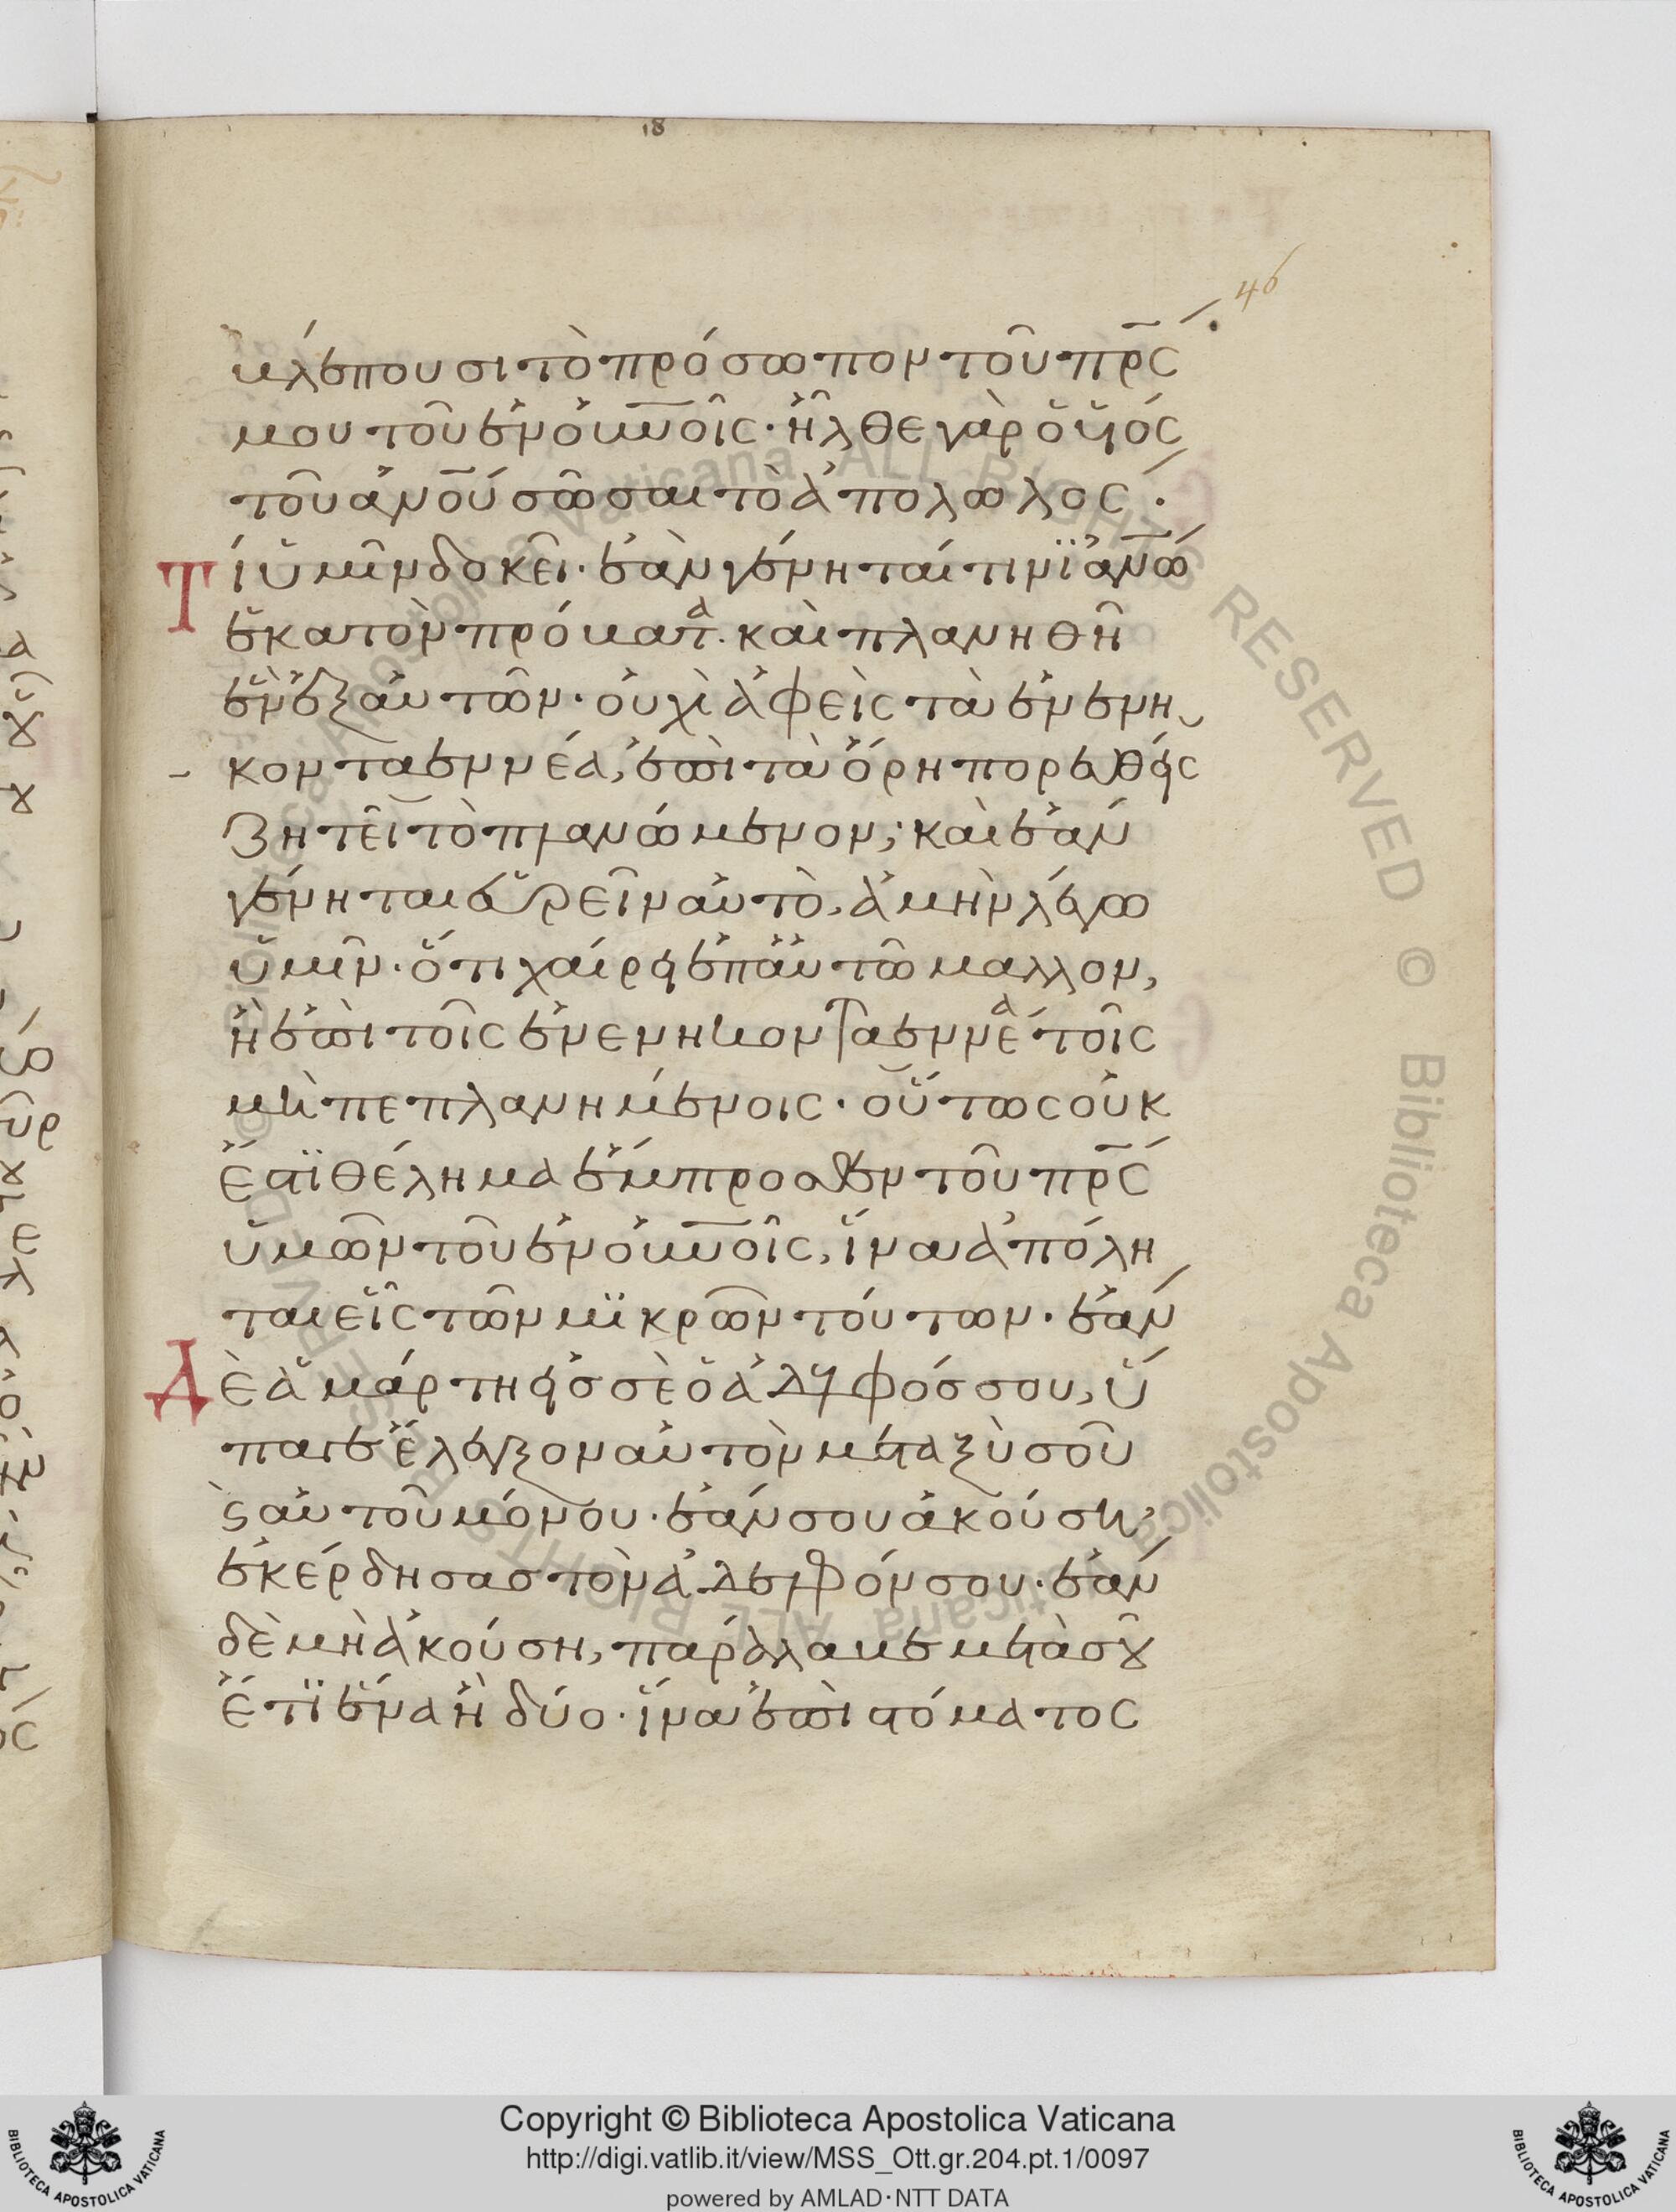 18
46
βλέπουσι τὸ πρόσωπον τοῦ πρ̅ς
μου τοῦ ἐν οὐν̅οῖς· ἦλθε γὰρ ὁ υἱός
τοῦ ἀν̅ου σῶσαι τὸ ἀπολωλός·
Τί ὑμῖν δοκεῖ· ἐὰν γένηταί τινϊ ἀν̅ω
ἑκατὸν πρόβατα· καὶ πλανηθῆ
ἓν ἐξ αὐτῶν· οὐχὶ ἀφεὶς τὰ ἐνενη
κονταεννέα, ἐπὶ τὰ ὄρη πορευθεὶς
ζητεῖ τὸ πλανώμενον; καὶ ἐὰν
γένηται εὑρεῖν αὐτὸ, ἀμὴν λέγω
ὑμῖν· ὅτι χαίρει ἐπ αὐτῶ μαλλον,
ἢ ἐπὶ τοῖς ἐνενηκονταεννέα τοῖς
μὴ πεπλανημένοις· οὕτως οὐκ
ἔστϊ θέλημα ἔμπροσθεν τοῦ πρ̅ς
ὑμῶν τοῦ ἐν οὐν̅οῖς, ἵνα ἀπόλη
ται εἷς τῶν μϊκρῶν τούτων· ἐὰν
Δὲ ἁμάρτη εἰς σὲ ὁ ἀδελφός σου, ὕ
παγε ἔλεγξον αὐτὸν μεταξὺ σοῦ
ϛ αὐτοῦ μόνου· ἐάν σου ἀκούση,
ἐκέρδησας τὸν ἀδελφόν σου· ἐὰν
δὲ μὴ ἀκούση, παράλαβε μετὰ σοῦ
ἔτϊ ἕνα ἢ δύο· ἵνα ἐπὶ στόματος
Copyright © Biblioteca Apostolica Vaticana
http://digi.vatlib.it/view/MSS_Ott.gr.204.pt.1/0097
powered by AMLAD·NTT DATA